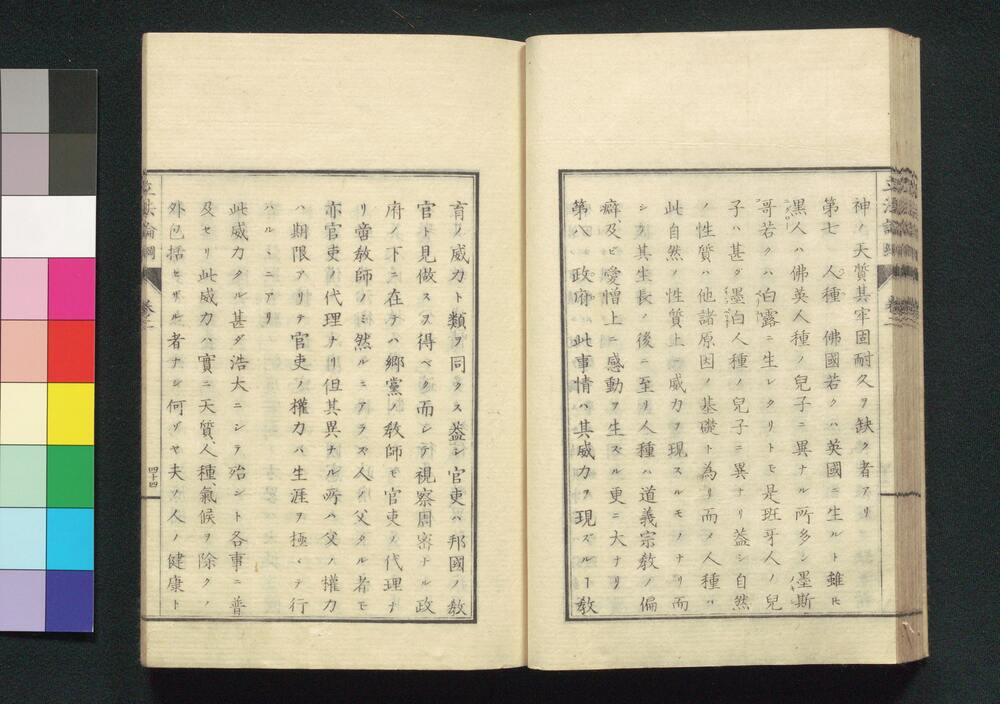 神ノ天質其牢固耐久ヲ缺ク者アリ
第七　人種　佛國若クハ英國ニ生ルト雖𪜈
黒人ハ佛英人種ノ兒子ニ異ナル所多シ墨斯
哥若クハ泊露ニ生レタリトモ是班牙人ノ兒
子ハ甚タ墨泊人種ノ兒子ニ異ナリ蓋シ自然
ノ性質ハ他諸原因ノ基礎ト為リ而メ人種ハ
此自然ノ性質上ニ威力ヲ現スルモノナリ而
シテ其生長ノ後ニ至リ人種ハ道義宗教ノ偏
癖、及ビ愛憎上ニ感動ヲ生スル更ニ大ナリ
第八、政府、此事情ハ其威力ヲ現ズルヿ教
育ノ威力ト類ヲ同クス蓋シ官吏ハ邦國ノ教
官ト見做スヿヲ得ベク而シテ視察周密ナル政
府ノ下ニ在テハ郷黨ノ教師モ官吏ノ代理ナ
リ啻教師ノミ然ルニアラス人ノ父タル者モ
亦官吏ノ代理ナリ但其異ナル所ハ父ノ權力
ハ期限アリテ官吏ノ權力ハ生涯ヲ極メテ行
ハルヽニアリ
此威力タル甚ダ浩大ニシテ殆ント各事ニ普
及セリ此威力ハ實ニ天質、人種、氣候ヲ除クノ
外包括セザル者ナシ何ゾヤ夫ノ人ノ健康ト
立法論綱
巻二
四十四